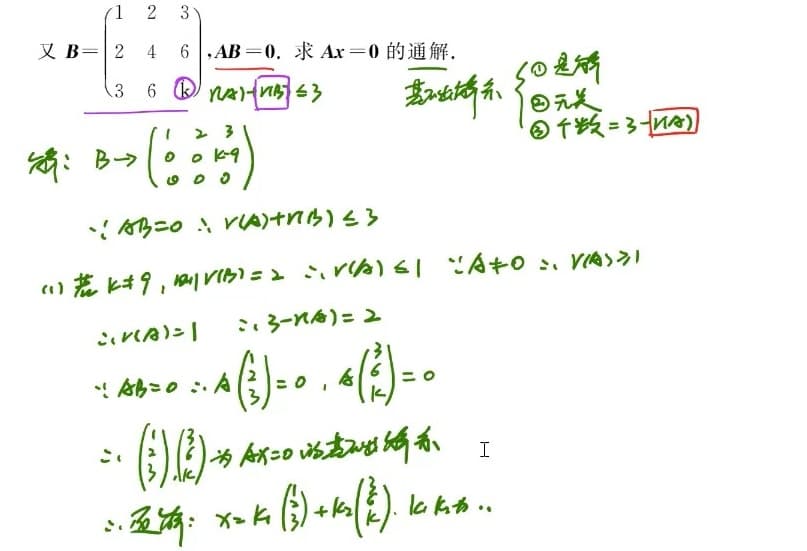 又 B = (1 2 3; 2 4 6; 3 6 k), AB = 0. 求 Ax = 0 的通解.
r(A)+r(B) ≤ 3
基础解系 { ① 是解
② 无关
③ 个数 = 3 - r(A)
解: B → (1 2 3; 0 0 k-9; 0 0 0)
∵ AB=0 ∴ r(A)+r(B) ≤ 3
(1) 若 k≠9, 则 r(B)=2 ∴ r(A) ≤ 1 ∵ A≠0 ∴ r(A) ≥ 1
∴ r(A)=1 ∴ 3-r(A)=2
∵ AB=0 ∴ A(1 2 3)=0, A(3 6 k)=0
∴ (1 2 3), (3 6 k) 为 Ax=0 的基础解系
∴ 通解: x = k₁(1 2 3) + k₂(3 6 k). k₁ k₂ 为..